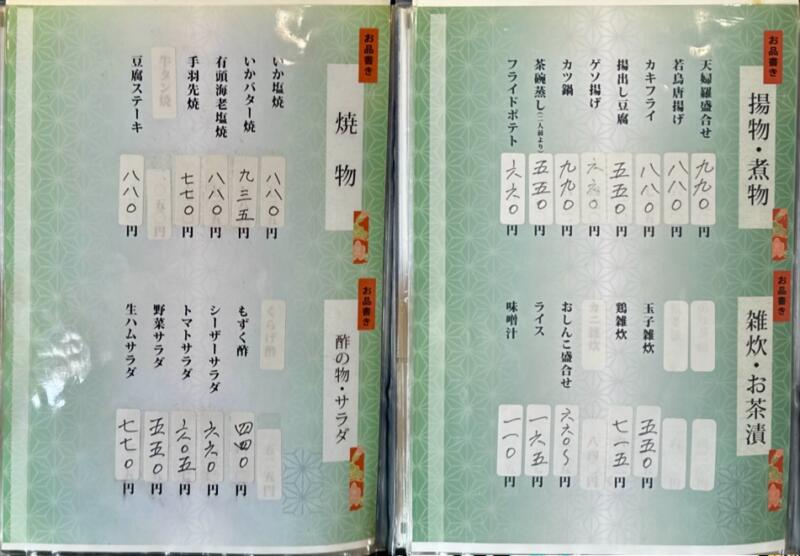 お品書き
揚物・煮物
天婦羅盛合せ 九九〇円
若鳥唐揚げ 八八〇円
カキフライ 八八〇円
揚出し豆腐 五五〇円
ゲソ揚げ 六六〇円
カツ鍋 九九〇円
茶碗蒸し(二人前より) 五五〇円
フライドポテト 六六〇円
お品書き
雑炊・お茶漬
玉子雑炊 五五〇円
鶏雑炊 七一五円
カニ雑炊
おしんこ盛合せ 六六〇〜円
ライス 一六五円
味噌汁 一一〇円
お品書き
焼物
いか塩焼 八八〇円
いかバター焼 九三五円
有頭海老塩焼 八八〇円
手羽先焼 七七〇円
牛タン焼
豆腐ステーキ 八八〇円
お品書き
酢の物・サラダ
くらげ酢
もずく酢 四四〇円
シーザーサラダ 六六〇円
トマトサラダ 六〇五円
野菜サラダ 五五〇円
生ハムサラダ 七七〇円